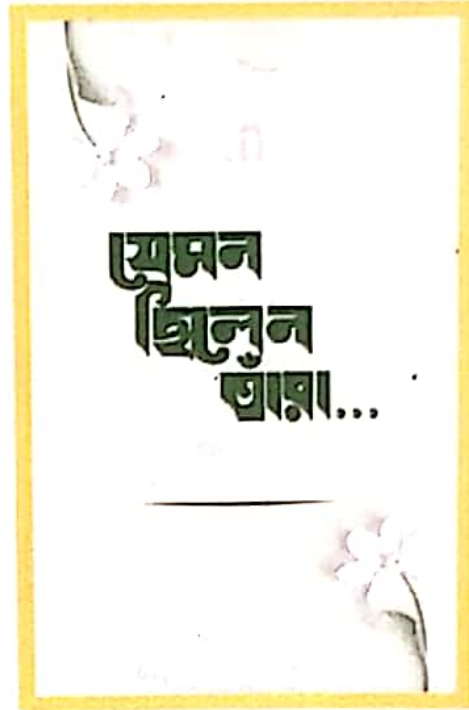 যেমন
ছিলেন
তাঁরা...